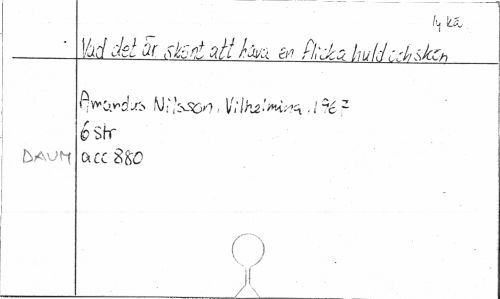 ly kä
Vad det är skönt att hava en flicka huld och skön
Amandus Nilsson, Vilhelmina, 1967
6 str
DAUM acc 880